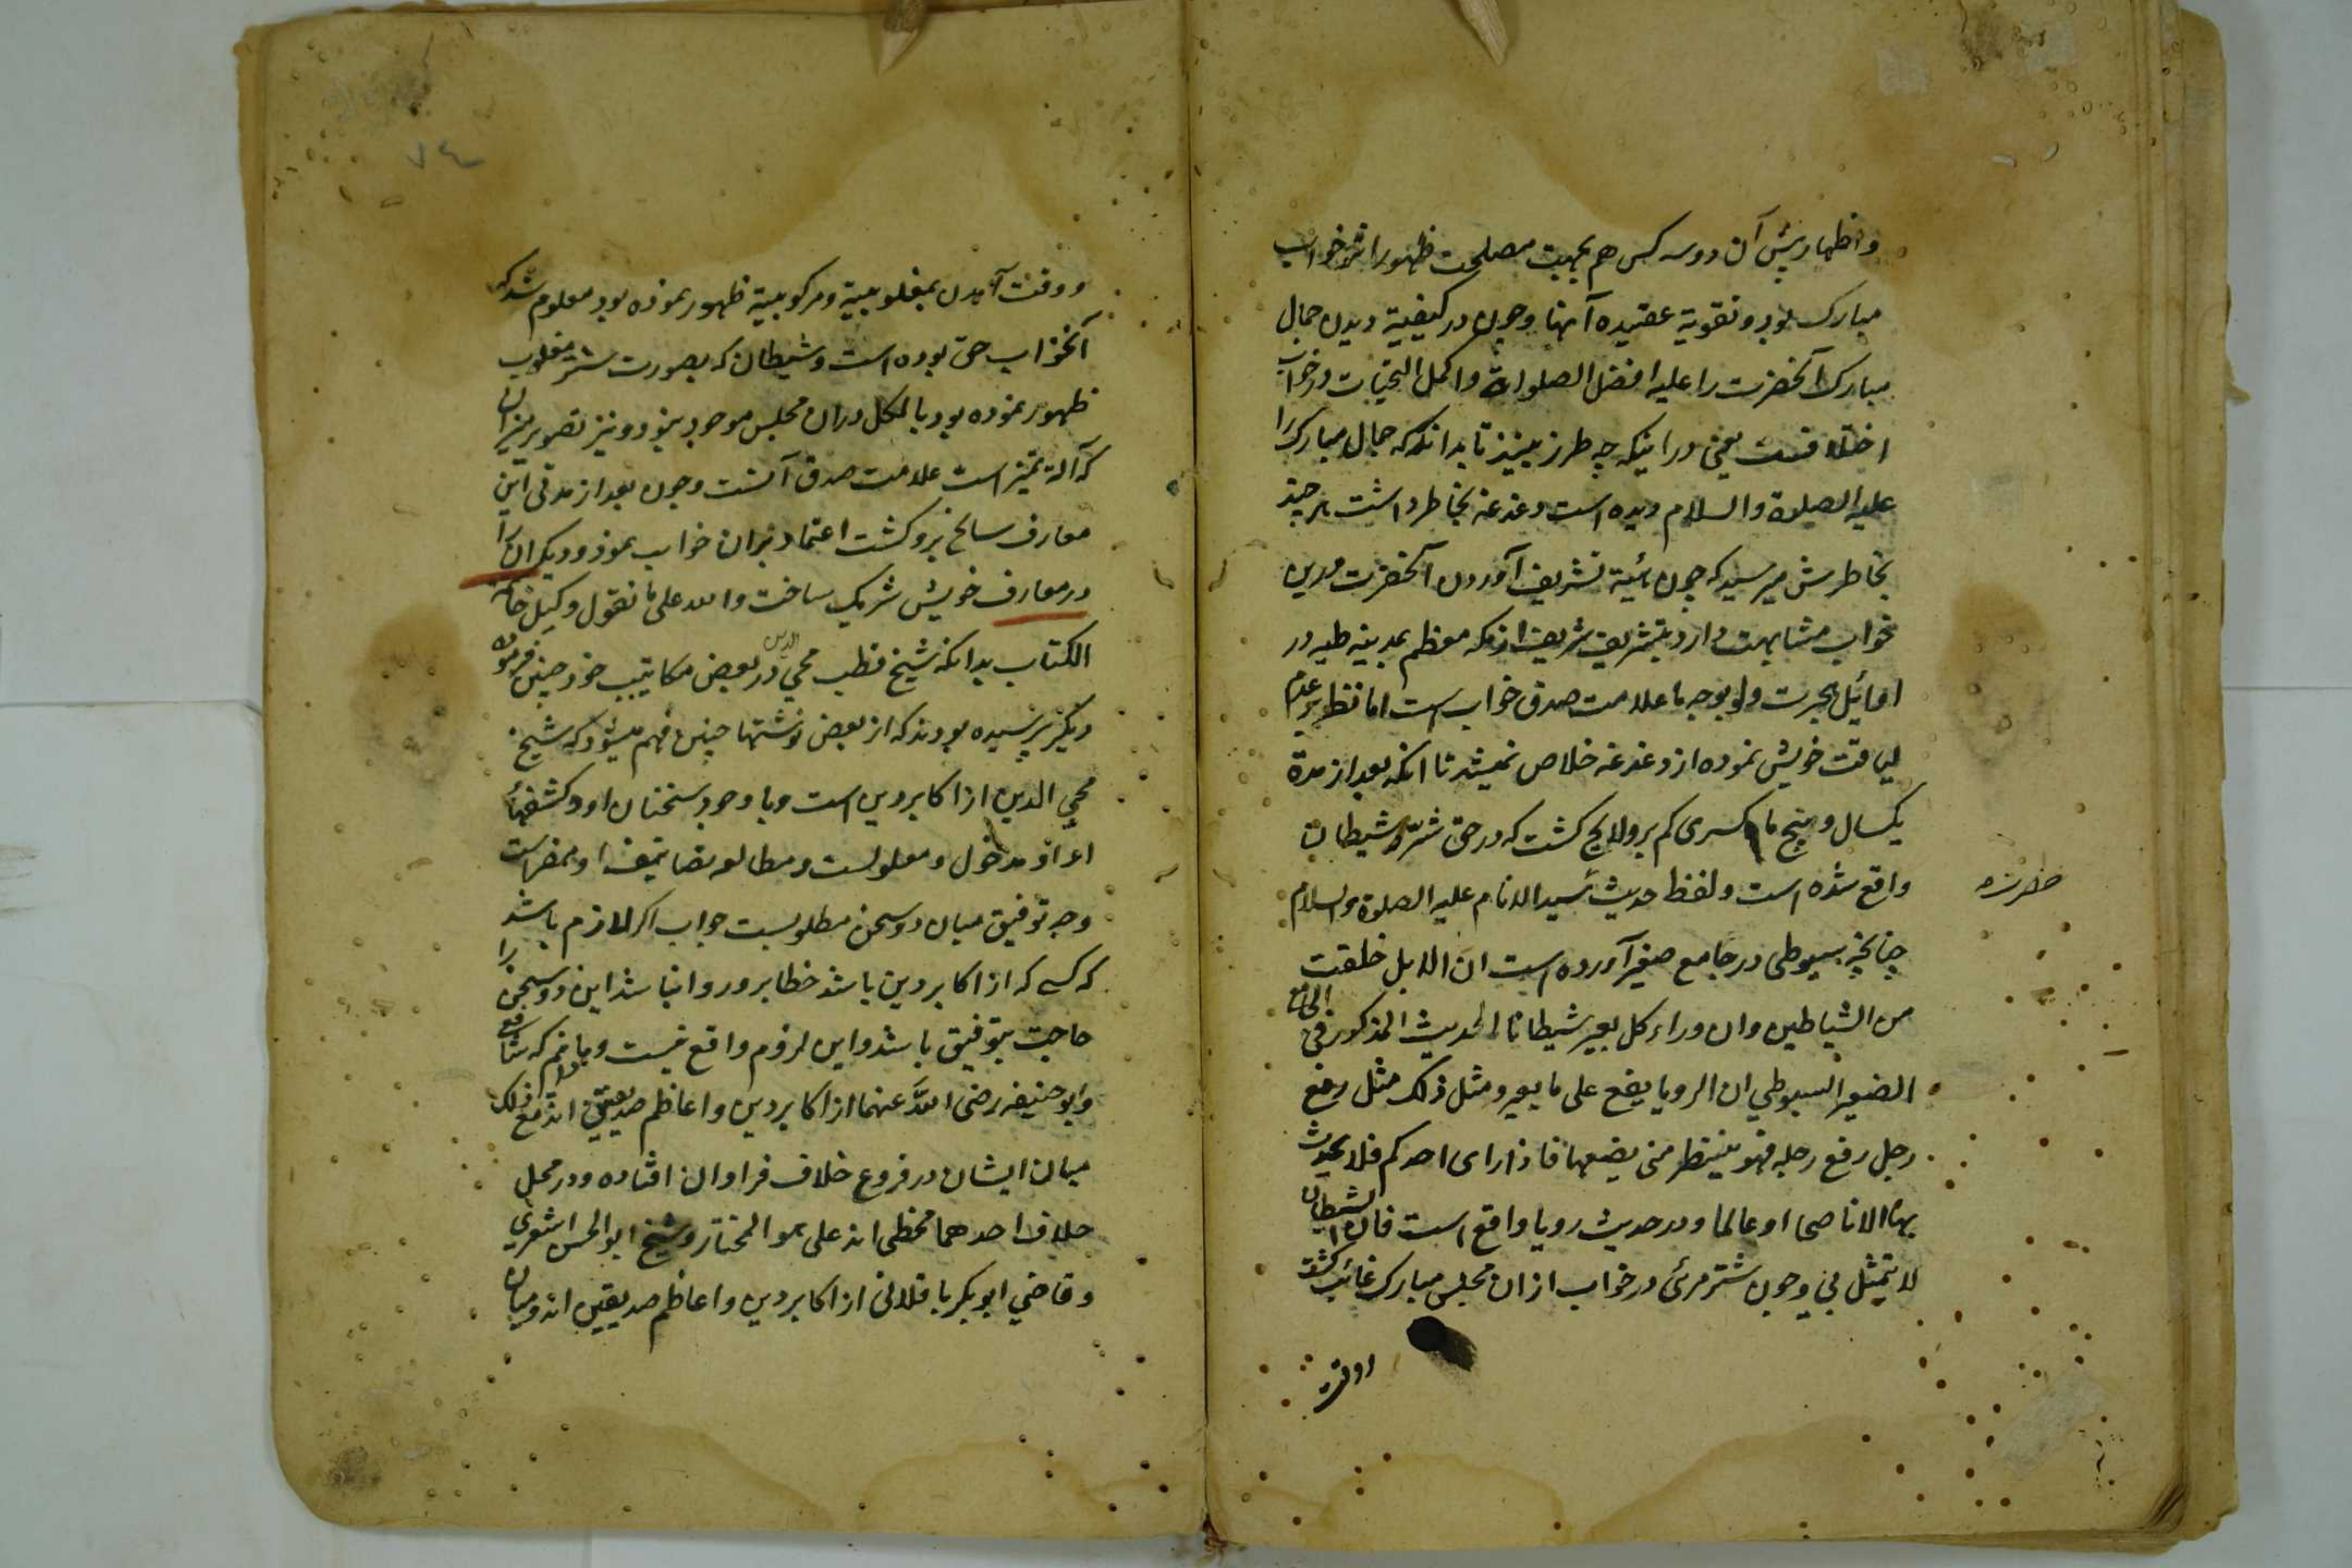 و اظهار پیش آن دو سه کس هم بجهت مصلحت ظهور اثر خواب
مبارک بود و تقویة عقیده آنها و چون در کیفیة دیدن جمال
مبارک آنحضرت را علیه افضل الصلوات و اکمل التحیات در خواب
اختلافست یعنی در اینکه چه طرز بینند تا بدانکه جمال مبارک را
علیه الصلوة والسلام دیده است دغدغه بخاطر داشت هر چند
بخاطرش میرسید که چون هیئة تشریف آوردن آنحضرت درین
خواب مشابهت دارد بتشریف شریف از مکه معظم بمدینه طیبه در
اوائل هجرت و بوجه ما علامت صدق خواب است اما نظر بر عدم
لیاقت خویش نموده از دغدغه خلاص نمیشد تا آنکه بعد از مدة
یکسال و پنج ماه کسری کم برو لایح کشت که در حق شتر شیطان
واقع شده است و لفظ حدیث سید الانام علیه الصلوة والسلام
چنانچه سیوطی در جامع صغیر آورده است ان الابل خلقت
من الشیاطین وان وراء کل بعیر شیطانا الحدیث المذکور فی الجامع
الصغیر السیوطی ان الرویا یقع علی ما یعبر ومثل ذلک مثل رفع
رجل رفع رجله فهو ینتظر متی یضعها فاذا رای احدکم فلا یحدث
بها الا ناصحا او عالما و در حدیث رویا واقع است فان الشیطان
لا یتمثل بی و چون شتر مرئی در خواب از ان مجلس مبارک غائب کشت
ووقت
و وقت آمدن بمغلوبیة و مرکوبیة ظهور نموده بود معلوم شد که
آنخواب حق بوده است و شیطان که بصورت شتر مغلوب
ظهور نموده بود بالکل دران مجلس موجود نبود و نیز تصویر میزان
که آلة تمیز است علامت صدق آنست و چون بعد از مدتی این
معارف سانح برو کشت اعتماد بران خواب نموذ و دیکران را
در معارف خویش شریک ساخت والله علی ما نقول وکیل خاتمه
الکتاب بدانکه شیخ قطب محی الدین در بعض مکاتیب خود چنین فرموده
دیکر پرسیده بودند که از بعض نوشتها چنین فهم میشود که شیخ
محی الدین از اکابر دین است و با وجود سخنان او و کشفهاء
او مدخول و معلولست و مطالعه تصانیف او مضر است
وجه توفیق میان دو سخن مطلوبست جواب اکر لازم باشد
که کسی که از اکابر دین باشد خطا برو روا نباشد این دو سخن را
حاجت بتوفیق باشد و این لزوم واقع نیست و ما دانیم که شافعی
و ابو حنیفه رضی الله عنهما از اکابر دین و اعاظم صدیقین اند مع ذلک
میان ایشان در فروع خلاف فراوان افتاده و در محل
خلاف احدهما مخطی اند علی هو المختار و شیخ ابو الحسن اشعری
و قاضی ابوبکر باقلانی از اکابر دین و اعاظم صدیقین اند و میان